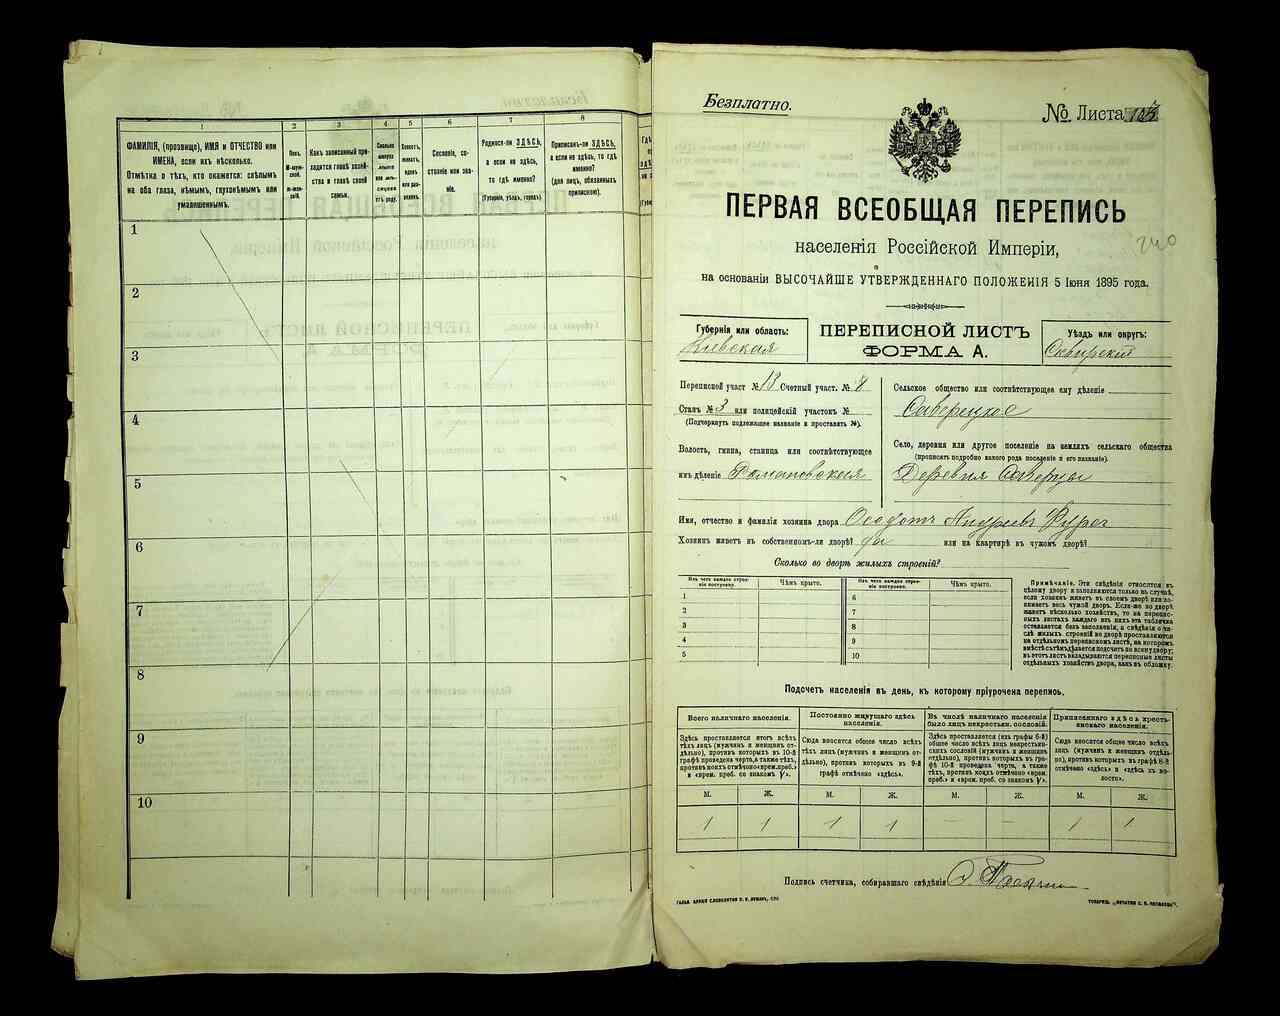 1
2
3
4
5
6
7
8
ФАМИЛІЯ, (прозвище), ИМЯ и ОТЧЕСТВО или
ИМЕНА, если ихъ нѣсколько.
Отмѣтка о тѣхъ, кто окажется: слѣпымъ
на оба глаза, нѣмымъ, глухонѣмымъ или
умалишеннымъ.
Полъ.
Какъ записанный при-
ходится главѣ хозяй-
ства и главѣ своей
семьи.
Сословіе, со-
стояніе или зва-
ніе.
Родился-ли ЗДѢСЬ,
а если не здѣсь,
то гдѣ именно?
(Губернія, уѣздъ, городъ).
Приписанъ-ли ЗДѢСЬ,
а если не здѣсь, то гдѣ
именно?
(для лицъ, обязанныхъ
припискою).
1
2
3
4
5
6
7
8
9
10
Безплатно.
№ Листа
ПЕРВАЯ ВСЕОБЩАЯ ПЕРЕПИСЬ
240
населенія Россійской Имперіи,
на основаніи ВЫСОЧАЙШЕ УТВЕРЖДЕННАГО ПОЛОЖЕНІЯ 5 Іюня 1895 года.
Губернія или область:
Кіевская
ПЕРЕПИСНОЙ ЛИСТЪ
ФОРМА А.
Уѣздъ или округъ:
Сквирскій
Переписной участ №18 Счетный участ. №
Станъ №3 или полицейскій участокъ №
(Подчеркнуть подлежащее названіе и проставить №).
Волость, гмина, станица или соотвѣтствующее
имъ дѣленіе Романовская
Сельское общество или соотвѣтствующее ему дѣленіе
Саверецкое
Село, деревня или другое поселеніе на земляхъ сельскаго общества
(прописать подробно какого рода поселеніе и его названіе).
Деревня Саверцы
Имя, отчество и фамилія хозяина двора Ѳеодотъ Андреевъ
Хозяинъ живетъ въ собственномъ-ли дворѣ? да или на квартирѣ въ чужомъ дворѣ?
Сколько во дворѣ жилыхъ строеній?
Изъ чего каждое строе-
ніе построено.
Чѣмъ крыто.
Изъ чего каждое строе-
ніе построено.
Чѣмъ крыто.
1
2
3
4
5
6
7
8
9
10
Примѣчаніе. Эти свѣдѣнія относятся къ
цѣлому двору и заполняются только въ случаѣ,
если хозяинъ живетъ въ своемъ дворѣ или за-
нимаетъ весь чужой дворъ. Если-же во дворѣ
живетъ нѣсколько хозяйствъ, то на перепис-
ныхъ листахъ каждаго изъ нихъ эта табличка
оставляется безъ заполненія, а свѣдѣнія о чи-
слѣ жилыхъ строеній во дворѣ проставляются
на отдѣльномъ переписномъ листѣ, на которомъ
вмѣстѣ съ тѣмъ дѣлается подсчетъ по всему двору;
въ этотъ листъ вкладываются переписные листы
отдѣльныхъ хозяйствъ двора, какъ въ обложку.
Подсчетъ населенія въ день, къ которому пріурочена перепись.
Всего наличнаго населенія.
Здѣсь проставляется итогъ всѣхъ
тѣхъ лицъ (мужчинъ и женщинъ от-
дѣльно), противъ которыхъ въ 10-й
графѣ проведена черта, а также тѣхъ,
противъ коихъ отмѣчено «врем. преб.»
и «врем. преб. со знакомъ V».
Постоянно живущаго здѣсь
населенія.
Сюда вносится общее число всѣхъ
тѣхъ лицъ (мужчинъ и женщинъ от-
дѣльно), противъ которыхъ въ 9-й
графѣ отмѣчено «здѣсь».
Въ числѣ наличнаго населенія
было лицъ некрестьян. сословій.
Здѣсь проставляется (изъ графы 6-й)
общее число всѣхъ лицъ некрестьян-
скихъ сословій (мужчинъ и женщинъ
отдѣльно), противъ которыхъ въ гра-
фѣ 10-й проведена черта, а также
тѣхъ, противъ коихъ отмѣчено «врем.
преб.» и «врем. преб. со знакомъ V».
Приписаннаго здѣсь кресть-
янскаго населенія.
Сюда вносится общее число всѣхъ
лицъ (мужчинъ и женщинъ отдѣль-
но), противъ которыхъ въ графѣ 8-й
отмѣчено «здѣсь» и «здѣсь въ во-
лости».
М. Ж. М. Ж. М. Ж. М. Ж.
1 1 1 1 — — 1 1
Подпись счетчика, собиравшаго свѣдѣнія